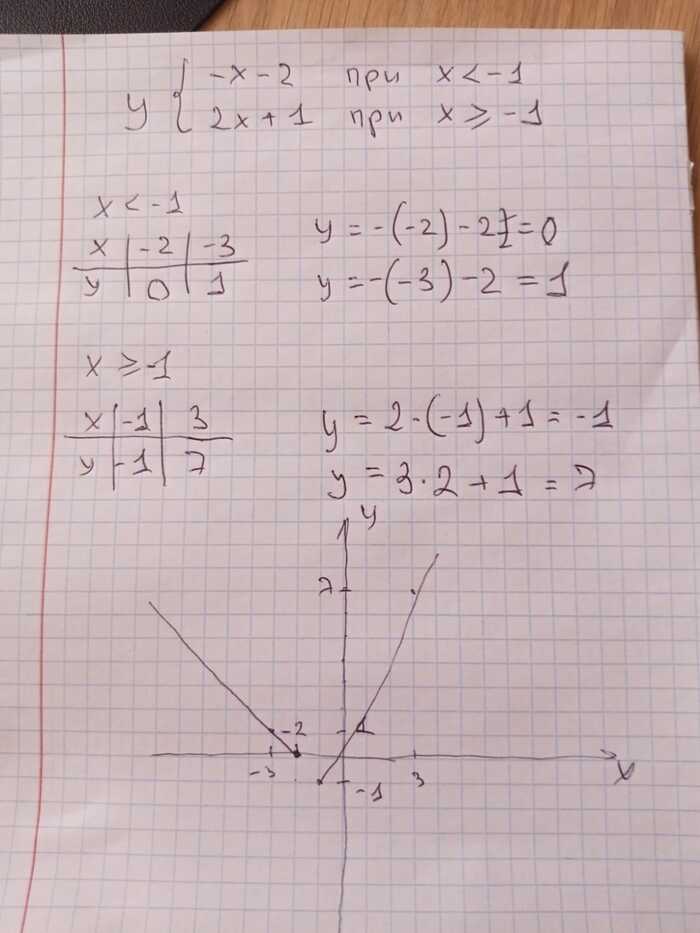 y { -x - 2 при x < -1
2x + 1 при x ⩾ -1
x < -1
x | -2 | -3
y | 0 | 1
y = -(-2) - 2 = 0
y = -(-3) - 2 = 1
x ⩾ -1
x | -1 | 3
y | -1 | 7
y = 2·(-1) + 1 = -1
y = 3·2 + 1 = 7
y
7
-2
1
-3
3
x
-1